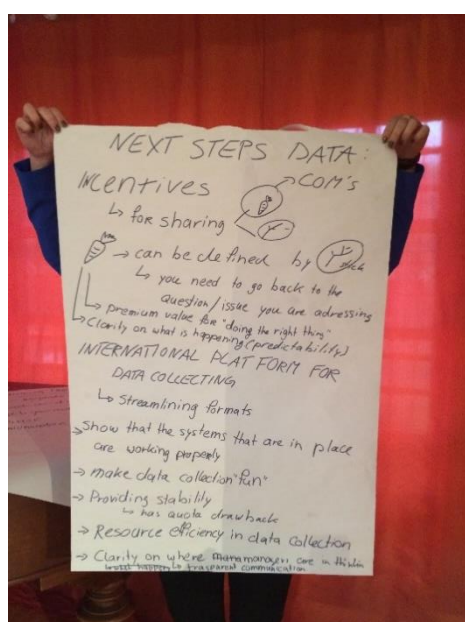 NEXT STEPS DATA:
INCENTIVES
COM'S
↳ for sharing
→ can be defined by stick
↳ you need to go back to the
question/issue you are adressing
↳ premium value for "doing the right thing"
↳ Clarity on what is happening (predictability)
INTERNATIONAL PLATFORM FOR
DATA COLLECTING
↳ Streamlining formats
→ Show that the systems that are in place
are working properly
→ make data collection "fun"
→ Providing stability
↳ has quota drawback
→ Resource efficiency in data collection
→ Clarity on where managers are in
happen transparent communication